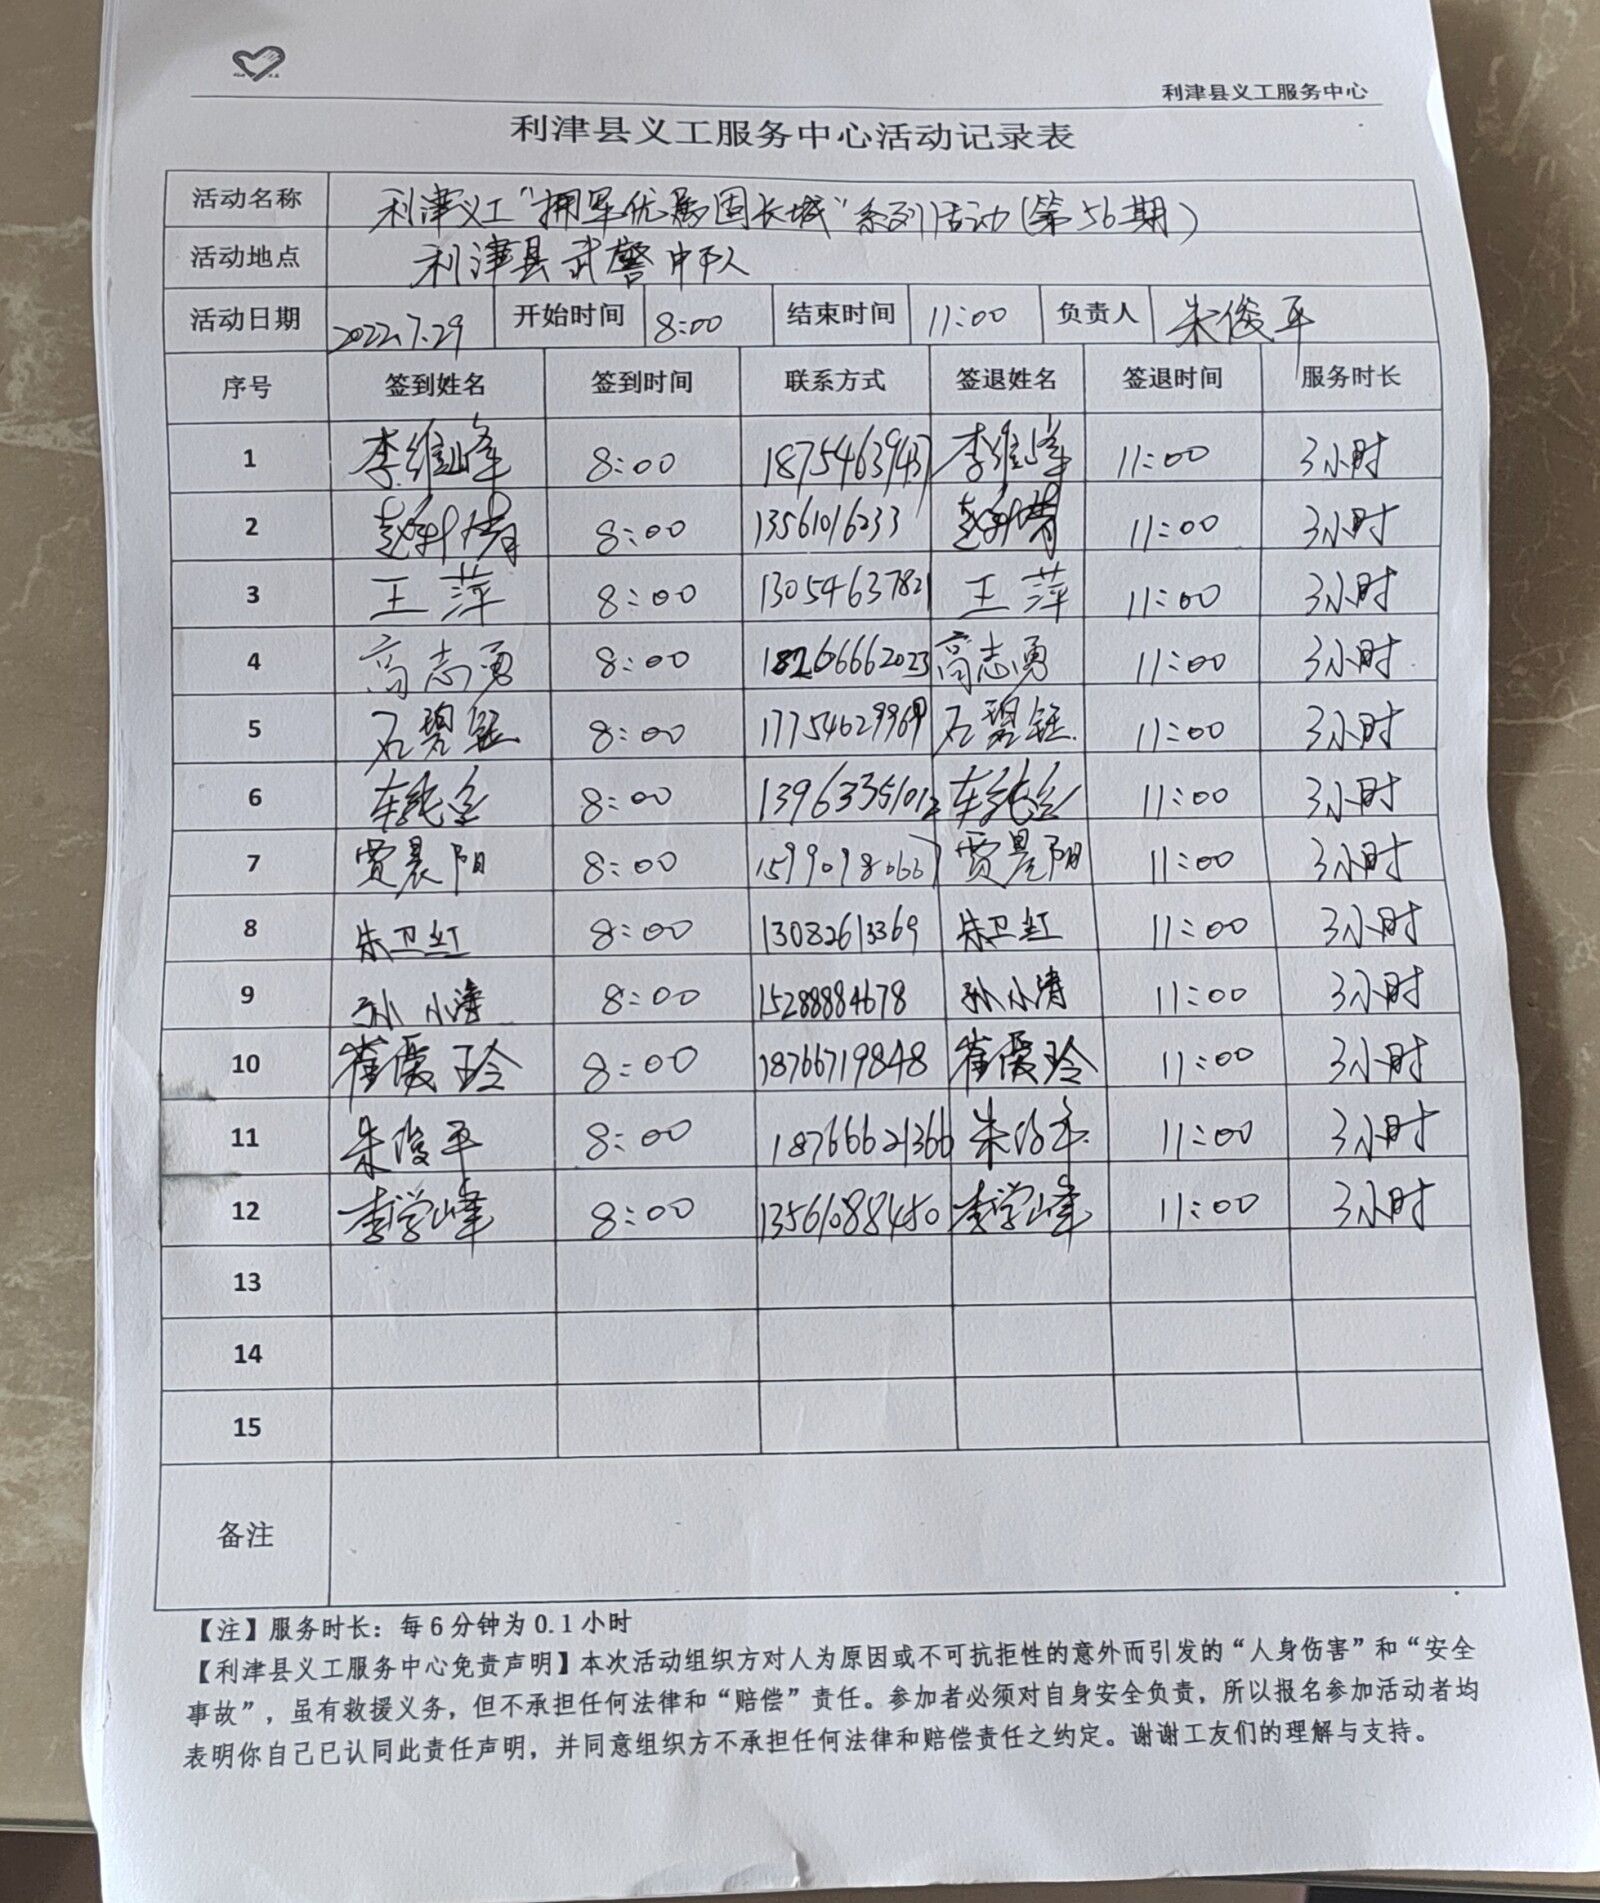 利津县义工服务中心
利津县义工服务中心活动记录表
活动名称 利津义工“拥军优属固长城”系列活动(第56期)
活动地点 利津县武警中队
活动日期 2022.7.29 开始时间 8:00 结束时间 11:00 负责人 朱俊平
序号 签到姓名 签到时间 联系方式 签退姓名 签退时间 服务时长
1 李维峰 8:00 李维峰 11:00 3小时
2 8:00 13561016233 11:00 3小时
3 王萍 8:00 13054637821 王萍 11:00 3小时
4 高志勇 8:00 18266662023 高志勇 11:00 3小时
5 石碧钰 8:00 17754629969 石碧钰 11:00 3小时
6 8:00 13963355101 11:00 3小时
7 贾晨阳 8:00 贾晨阳 11:00 3小时
8 朱卫红 8:00 13082613369 朱卫红 11:00 3小时
9 孙小涛 8:00 15288884678 孙小涛 11:00 3小时
10 崔霞玲 8:00 18766719848 崔霞玲 11:00 3小时
11 朱俊平 8:00 18766621366 朱俊平 11:00 3小时
12 李学峰 8:00 13561088450 李学峰 11:00 3小时
13
14
15
备注
【注】服务时长：每6分钟为0.1小时
【利津县义工服务中心免责声明】本次活动组织方对人为原因或不可抗拒性的意外而引发的“人身伤害”和“安全
事故”，虽有救援义务，但不承担任何法律和“赔偿”责任。参加者必须对自身安全负责，所以报名参加活动者均
表明你自己已认同此责任声明，并同意组织方不承担任何法律和赔偿责任之约定。谢谢工友们的理解与支持。